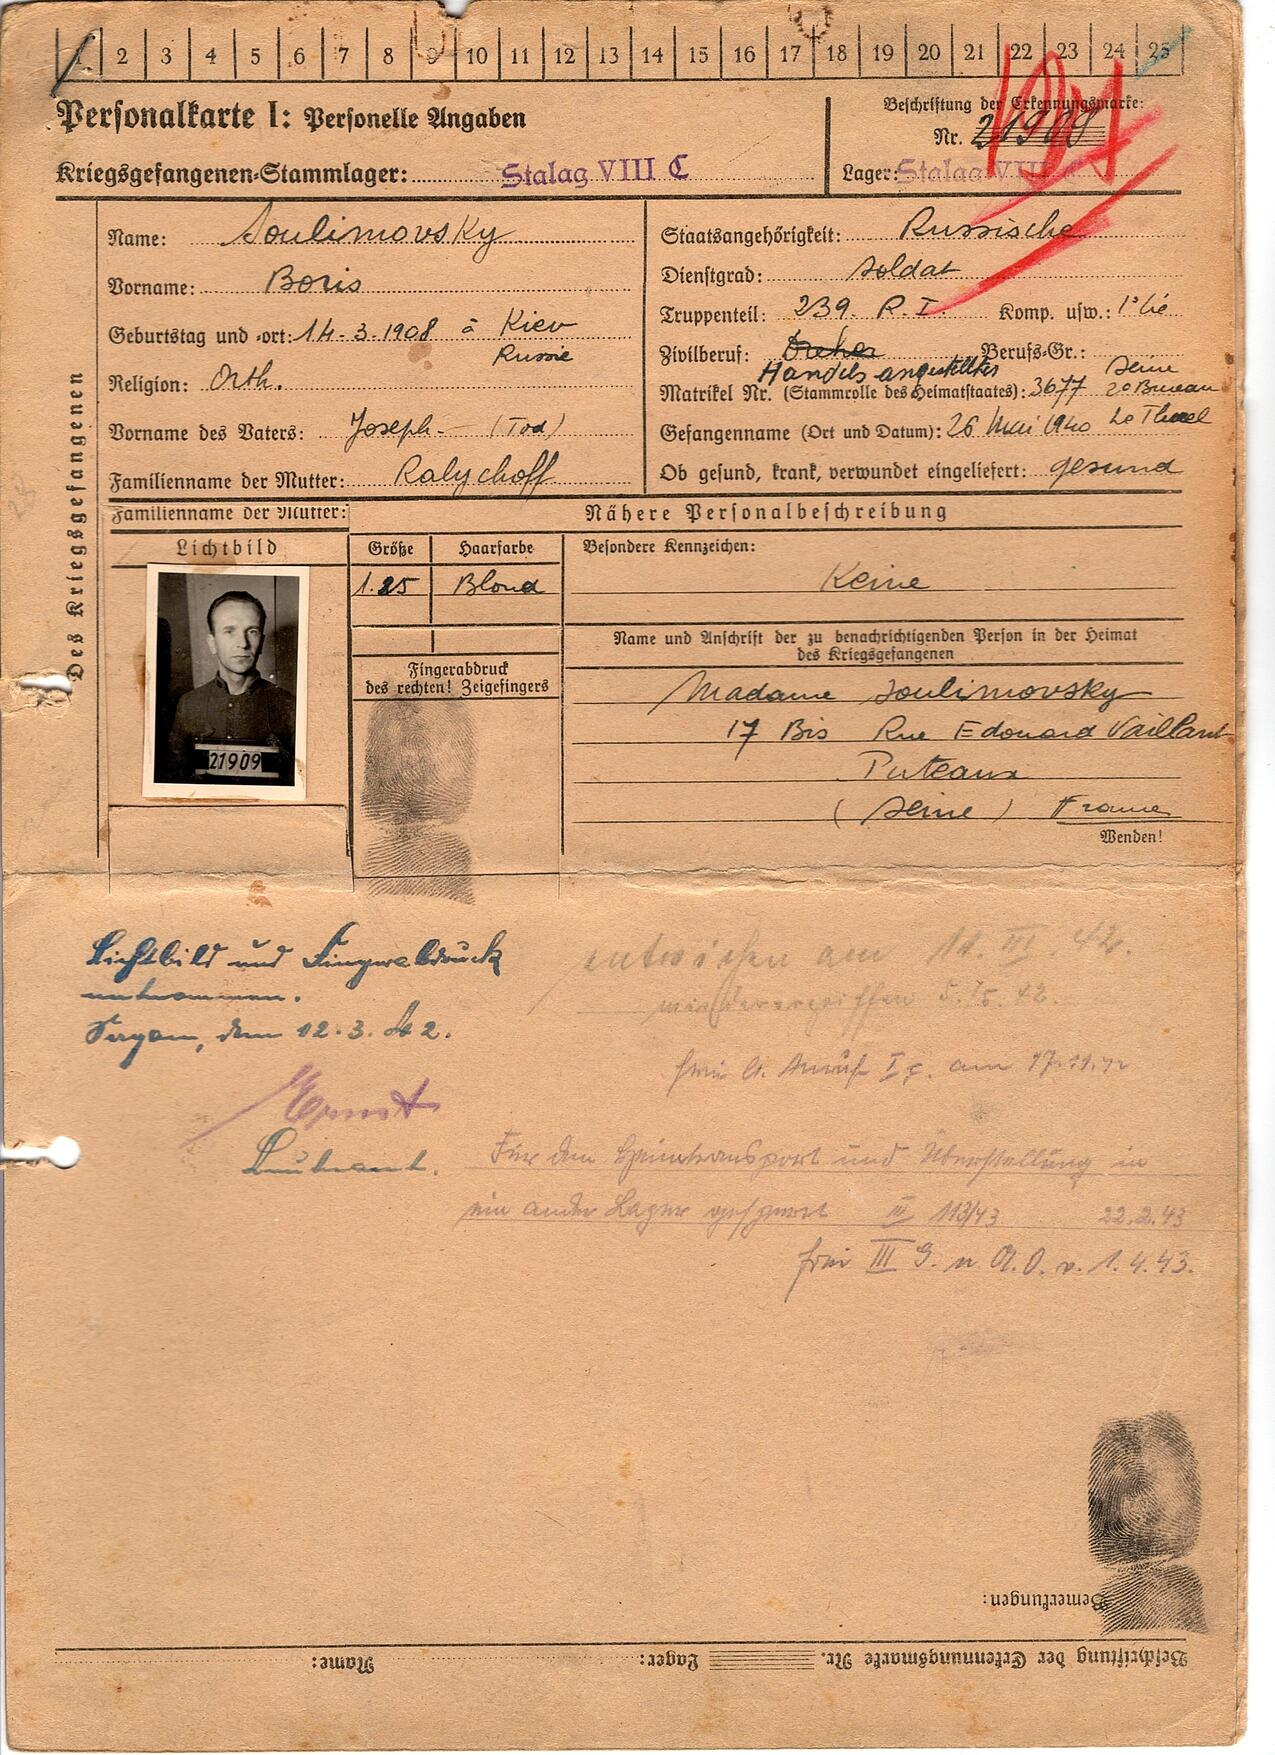 1 2 3 4 5 6 7 8 9 10 11 12 13 14 15 16 17 18 19 20 21 22 23 24 25
Personalkarte I: Personelle Angaben
Beschriftung der Erkennungsmarke:
Nr. 21909
Kriegsgefangenen-Stammlager: Stalag VIII C
Lager: Stalag VIII C
Des Kriegsgefangenen
Name: Soulimovsky
Vorname: Boris
Geburtstag und -ort: 14-3-1908 à Kiev
Russie
Religion: Orth.
Vorname des Vaters: Joseph - (Tod)
Familienname der Mutter: Ralychoff
Staatsangehörigkeit: Russische
Dienstgrad: Soldat
Truppenteil: 239. R.I. Komp. usw.: 1° Cie
Zivilberuf: Dreher Berufs-Gr.:
Handelsangestellter
Matrikel Nr. (Stammrolle des Heimatstaates): 3677 Seine 20 Bureau
Gefangenname (Ort und Datum): 26 Mai 1940
Ob gesund, krank, verwundet eingeliefert: gesund
Familienname der Mutter:
Nähere Personalbeschreibung
Lichtbild
21909
Größe Haarfarbe
Blond
Fingerabdruck
des rechten! Zeigefingers
Besondere Kennzeichen:
Keine
Name und Anschrift der zu benachrichtigenden Person in der Heimat
des Kriegsgefangenen
Madame Soulimovsky
17 Bis Rue Edouard Vaillant
Puteaux
(Seine) France
Wenden!
Lichtbild und Fingerabdruck
entnommen.
Sagan, den 12.3.42.
Leutnant.
entwichen am 11. III. 42.
wiederergriffen 5. 42.
am 17.11.42
Für den Heimtransport und Überstellung in
ein ander Lager gesperrt III 113/43 22.2.43
frei III G. n. A.O. v. 1.4.43.
Bemerkungen:
Beschriftung der Erkennungsmarke Nr. Lager: Name: